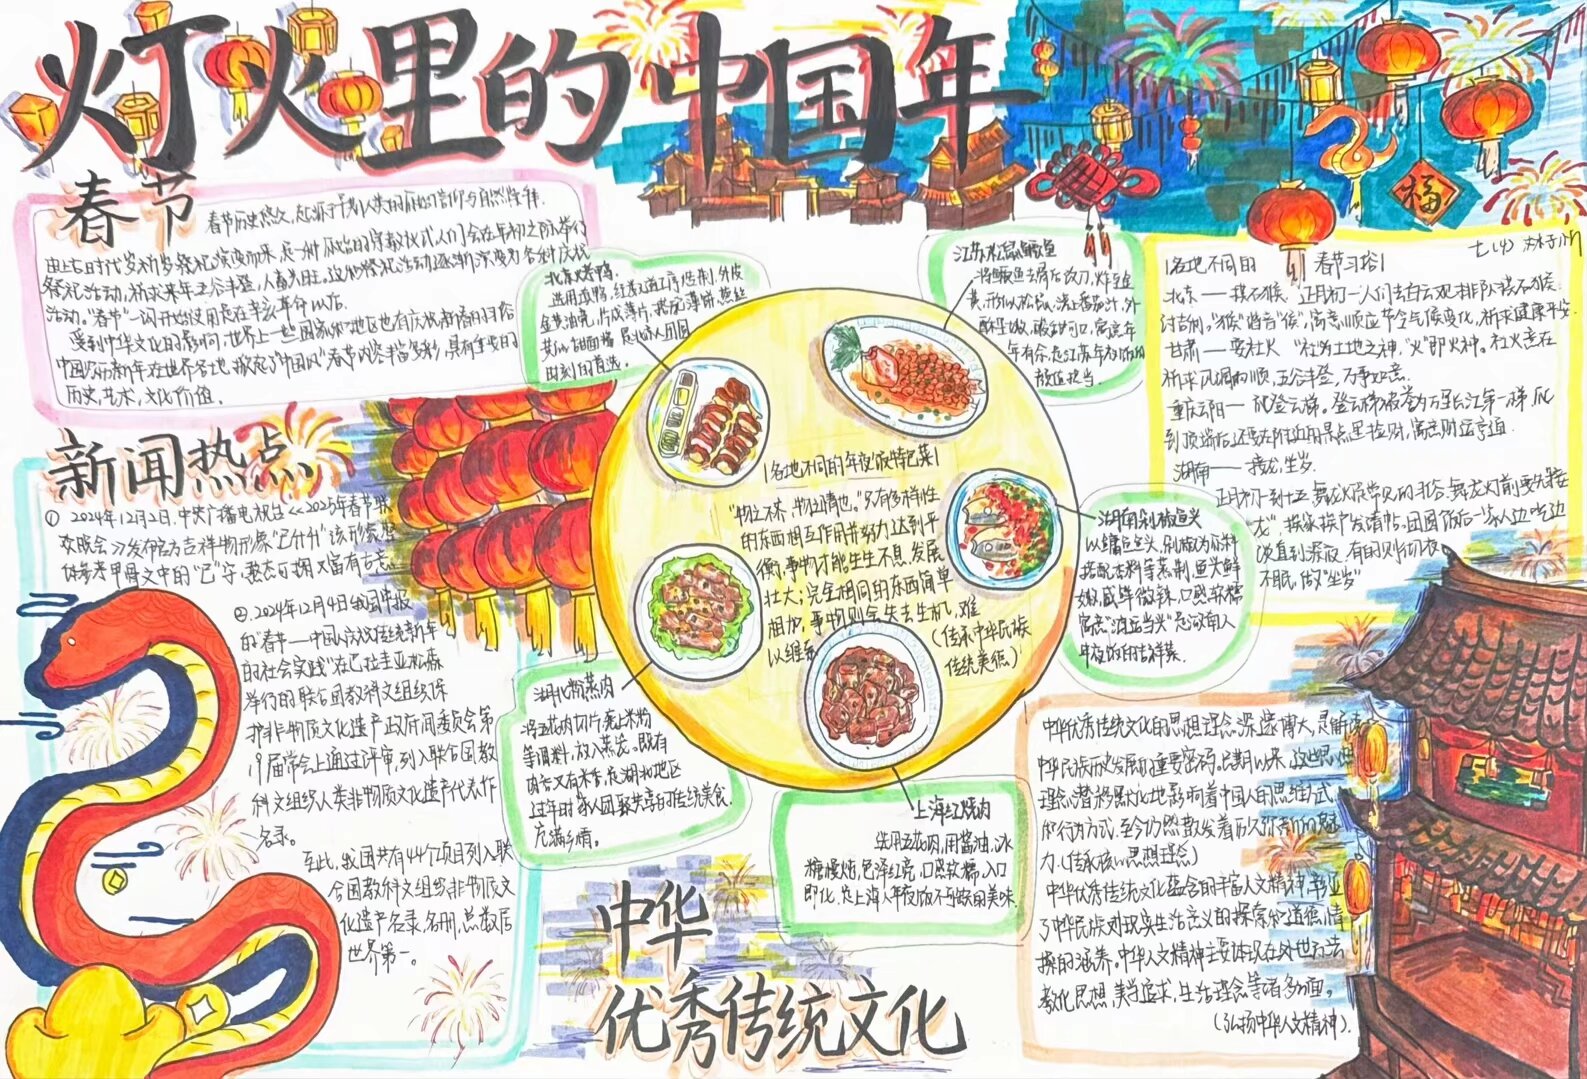 灯火里的中国年
春节
春节历史悠久，起源于早期人类的原始信仰与自然崇拜.
由上古时代岁首祈岁祭祀演变而来.是一种原始的宗教仪式.人们会在年初之际举行
祭祀活动,祈求来年五谷丰登,人畜兴旺。这种祭祀活动逐渐演变为各种庆祝
活动。"春节"一词开始使用是在辛亥革命以后。
受到中华文化的影响,世界上一些国家和地区也有庆祝新春的习俗
中国农历新年在世界各地,掀起了"中国风".春节内容丰富多彩,具有重要的
历史,艺术,文化价值。
新闻热点
① 2024年12月2日.中央广播电视台《2025年春节联
欢晚会》发布官方吉祥物形象"巳升升"该形象整
体参考甲骨文中的"巳"字,憨态可掬又富有古意
②.2024年12月4日我国申报
的"春节——中国人庆祝传统新年
的社会实践"在巴拉圭亚松森
举行的联合国教科文组织保
护非物质文化遗产政府间委员会第
19届常会上通过评审,列入联合国教
科文组织人类非物质文化遗产代表作
名录。
至此,我国共有44个项目列入联
合国教科文组织非物质文
化遗产名录.名册,总数居
世界第一。
北京烤鸭.
选用填鸭,经多道工序烤制,外皮
金黄油亮,片成薄片,搭配薄饼.葱丝
黄瓜.甜面酱.是北京人团圆
时刻的首选。
江苏松鼠鳜鱼
将鳜鱼去骨后改刀,炸至金
黄,形似松鼠,浇上番茄汁,外
酥里嫩,酸甜可口,寓意年
年有余.是江苏年夜饭的
颜值担当.
|各地不同的年夜饭特色菜|
"物之不齐,物之情也。"只有多样性
的东西相互作用并努力达到平
衡,事物才能生生不息,发展
壮大;完全相同的东西简单
相加,事物则会失去生机,难
以维系
(传承中华民族
传统美德)
湖南剁椒鱼头
以鳙鱼鱼头,剁椒为原料
搭配香料等蒸制.鱼头鲜
嫩.咸鲜微辣.口感软糯
寓意"鸿运当头"是湖南人
年夜饭的吉祥菜.
湖北粉蒸肉
将五花肉切片,裹上米粉
等调料,放入蒸笼。既有
肉香又有米香.是湖北地区
过年时家人团聚共享的传统美食.
充满乡情。
上海红烧肉
选用五花肉,用酱油.冰
糖慢炖,色泽红亮,口感软糯,入口
即化.是上海人年夜饭不可或缺的美味.
福
七(4)
|各地不同的 春节习俗|
北京——摸石猴. 正月初一人们去白云观排队摸石猴
讨吉利,"猴"谐音"侯",寓意顺应节令气候变化,祈求健康平安.
甘肃——耍社火 "社"为土地之神,"火"即火神。社火意在
祈求风调雨顺,五谷丰登,万事如意.
重庆云阳——爬登云梯。登云梯被誉为万里长江第一梯,爬
到顶端后还要在附近的景点里捡财,寓意财运亨通.
湖南——接龙,坐岁.
正月初一到十五,舞龙灯很常见的习俗.舞龙灯前要先"接
龙",挨家挨户发请帖.团圆饭后一家人边吃边
谈直到深夜,有的则彻夜
不眠,称"坐岁"
中华优秀传统文化的思想理念深远博大,是解读
中华民族历史发展的重要密码。长期以来,这些思想
理念潜移默化地影响着中国人的思维方式
和行为方式.至今仍然散发着历久弥新的魅
力.(传承核心思想理念)
中华优秀传统文化蕴含的丰富人文精神,彰显
了中华民族对现实生活意义的探索和道德情
操的涵养.中华人文精神主要体现在处世方法
教化思想,美学追求,生活理念等诸多方面。
(弘扬中华人文精神).
中华
优秀传统文化